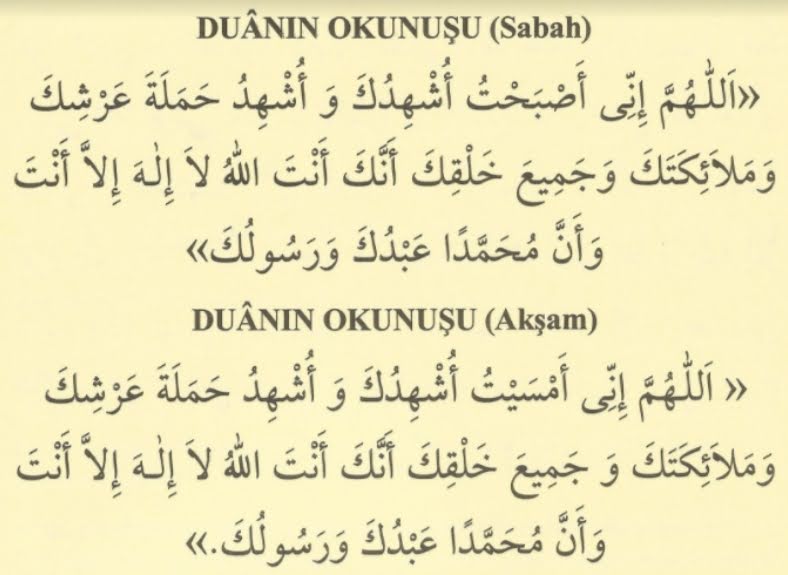 DUÂNIN OKUNUŞU (Sabah)
«اَللّٰهُمَّ إِنِّى أَصْبَحْتُ أُشْهِدُكَ وَ أُشْهِدُ حَمَلَةَ عَرْشِكَ
وَمَلاَئِكَتَكَ وَجَمِيعَ خَلْقِكَ أَنَّكَ أَنْتَ اللّٰهُ لاَ إِلٰهَ إِلاَّ أَنْتَ
وَأَنَّ مُحَمَّدًا عَبْدُكَ وَرَسُولُكَ»
DUÂNIN OKUNUŞU (Akşam)
« اَللّٰهُمَّ إِنِّى أَمْسَيْتُ أُشْهِدُكَ وَ أُشْهِدُ حَمَلَةَ عَرْشِكَ
وَمَلاَئِكَتَكَ وَ جَمِيعَ خَلْقِكَ أَنَّكَ أَنْتَ اللّٰهُ لاَ إِلٰهَ إِلاَّ أَنْتَ
وَأَنَّ مُحَمَّدًا عَبْدُكَ وَرَسُولُكَ.»